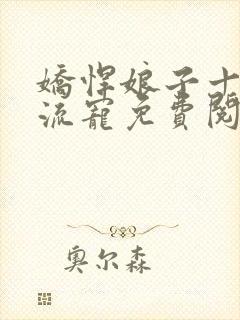 嬌悍娘子十
流寵免費閱
奧尔森